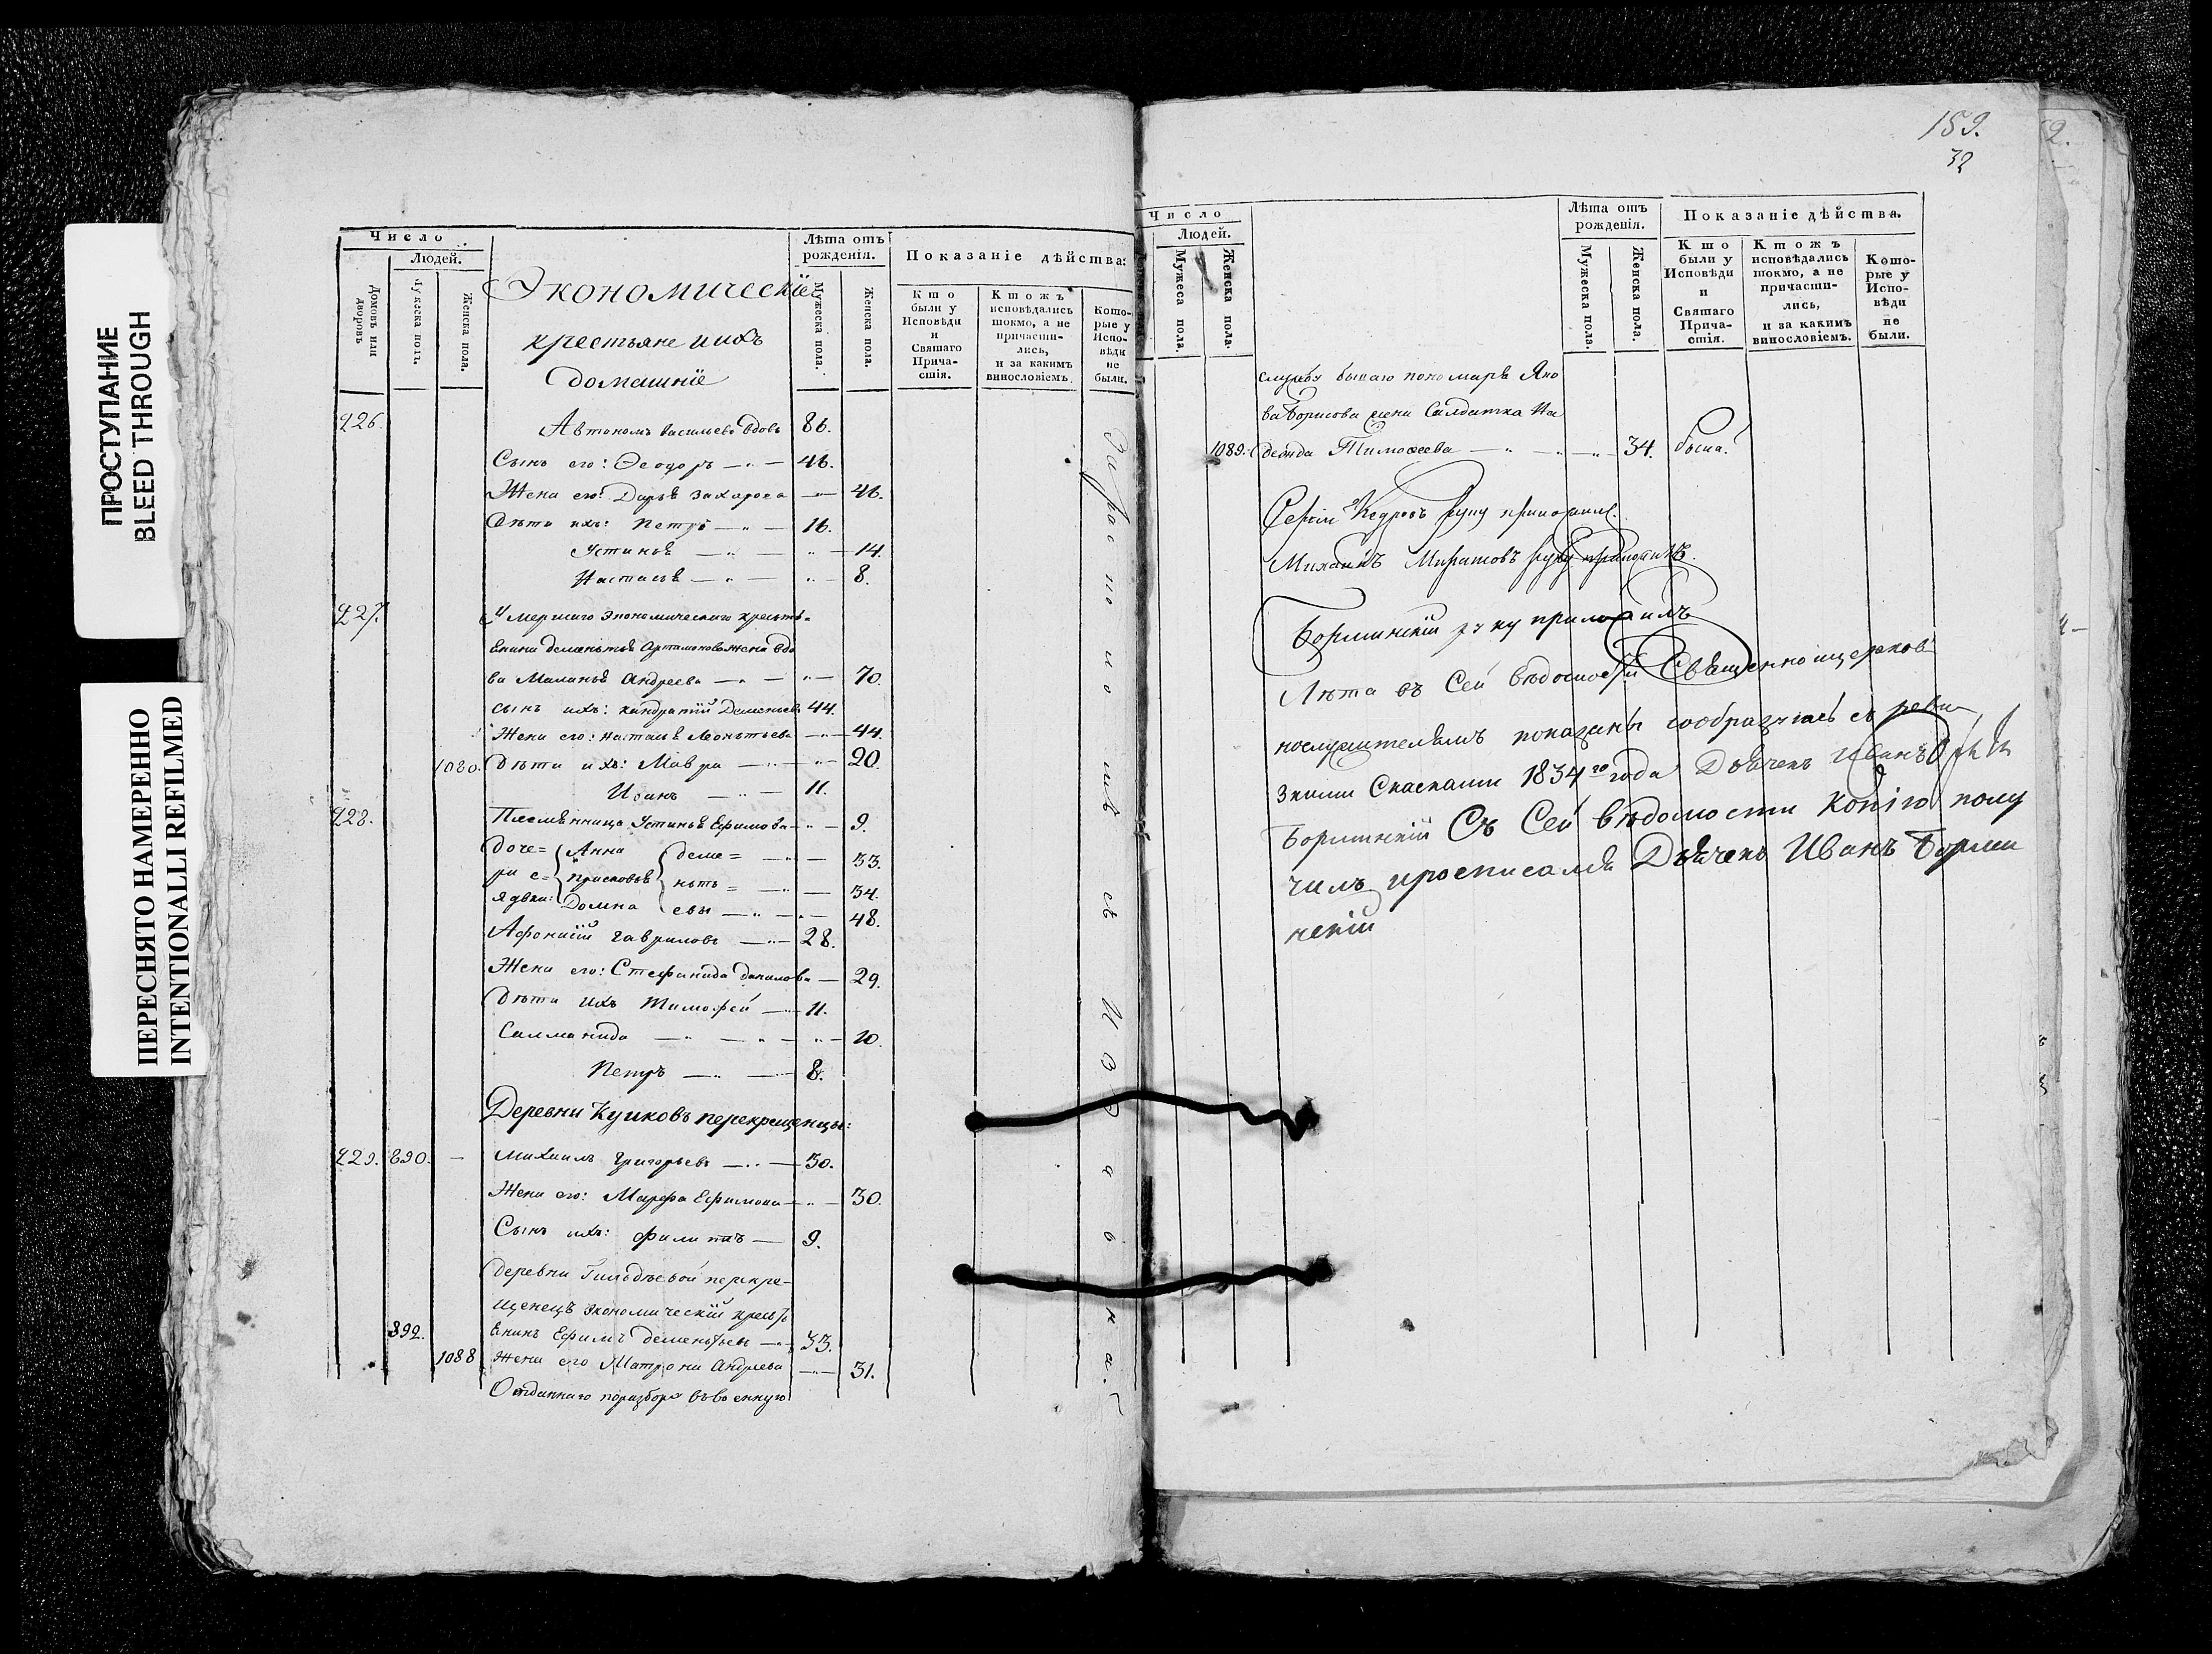 ПРОСТУПАНИЕ
BLEED THROUGH
ПЕРЕСНЯТО НАМЕРЕННО
INTENTIONALLI REFILMED
Число
Людей.
Домовъ или дворовъ
Мужеска полъ.
Женска пола.
Экономическіе
крестьяне и ихъ
домашніе
Лѣта отъ рожденія.
Мужеска пола.
Женска пола.
Показаніе дѣйства:
Кто были у Исповѣди и Святаго Причастія.
Ктожъ исповѣдались токмо, а не причастились, и за какимъ винословіемъ.
Которые у Исповѣди не были.
426. Автономъ Васильевъ вдовъ 86.
Сынъ его: Ѳеодоръ — 46.
Жена его: Дарья Захарова — 46.
Дѣти ихъ: Петръ — 16.
Устинья — 14.
Настасья — 8.
427. Умершаго Экономическаго кресть-
янина Дементья Артамонова жена вдо
ва Маланья Андреева — 70.
сынъ ихъ: Кандратій Дементьевъ 44.
Жена его: Настасья Леонтьева — 44.
1080. Дѣти ихъ: Мавра — 20.
Иванъ — 11.
428. Племянница Устинья Ефимова — 9.
Доче= Анна Деме= — 33.
ри е= Прасковья нть= — 34.
я двки: Домна евы — 48.
Афонасій Гавриловъ — 28.
Жена его: Стефанида Данилова — 29.
Дѣти ихъ Тимофей — 11.
Саломанида — 10.
Петръ — 8.
Деревни Кушковъ перекрещенцы:
429. 890. — Михаилъ Григорьевъ — 30.
Жена его: Марфа Ефимова — 30.
Сынъ ихъ: Филиппъ — 9.
Деревни перекре-
щенецъ экономическій кресть
892. янинъ Ефимъ Дементьевъ — 33.
1088 Жена его Матрона Андреева — 31.
Отданнаго поразбору въвоенную
За расположеніемъ
159.
32
Число
Людей.
Мужеса пола.
Женска пола.
Лѣта отъ рожденія.
Мужеска пола.
Женска пола.
Показаніе дѣйства.
Кто были у Исповѣди и Святаго Причастія.
Ктожъ исповѣдались токмо, а не причастились, и за какимъ винословіемъ.
Которые у Исповѣди не были.
службу бываго пономаря Яко
ва Борисова жена Салдатка На
1089. дежда Тимофеева — 34. была.
Сергій Кедровъ руку приложилъ.
Михаилъ руку приложилъ.
Борминскій руку приложилъ
Лѣта въ Сей вѣдомости Священноицерков
нослужителямъ показаны сообразуясь съ реви
зкими Сказками 1834го года Дьячекъ Иванъ
Борминскій Съ Сей вѣдомости копію полу
чилъ иросписался Дьячекъ Иванъ Борми
нскій